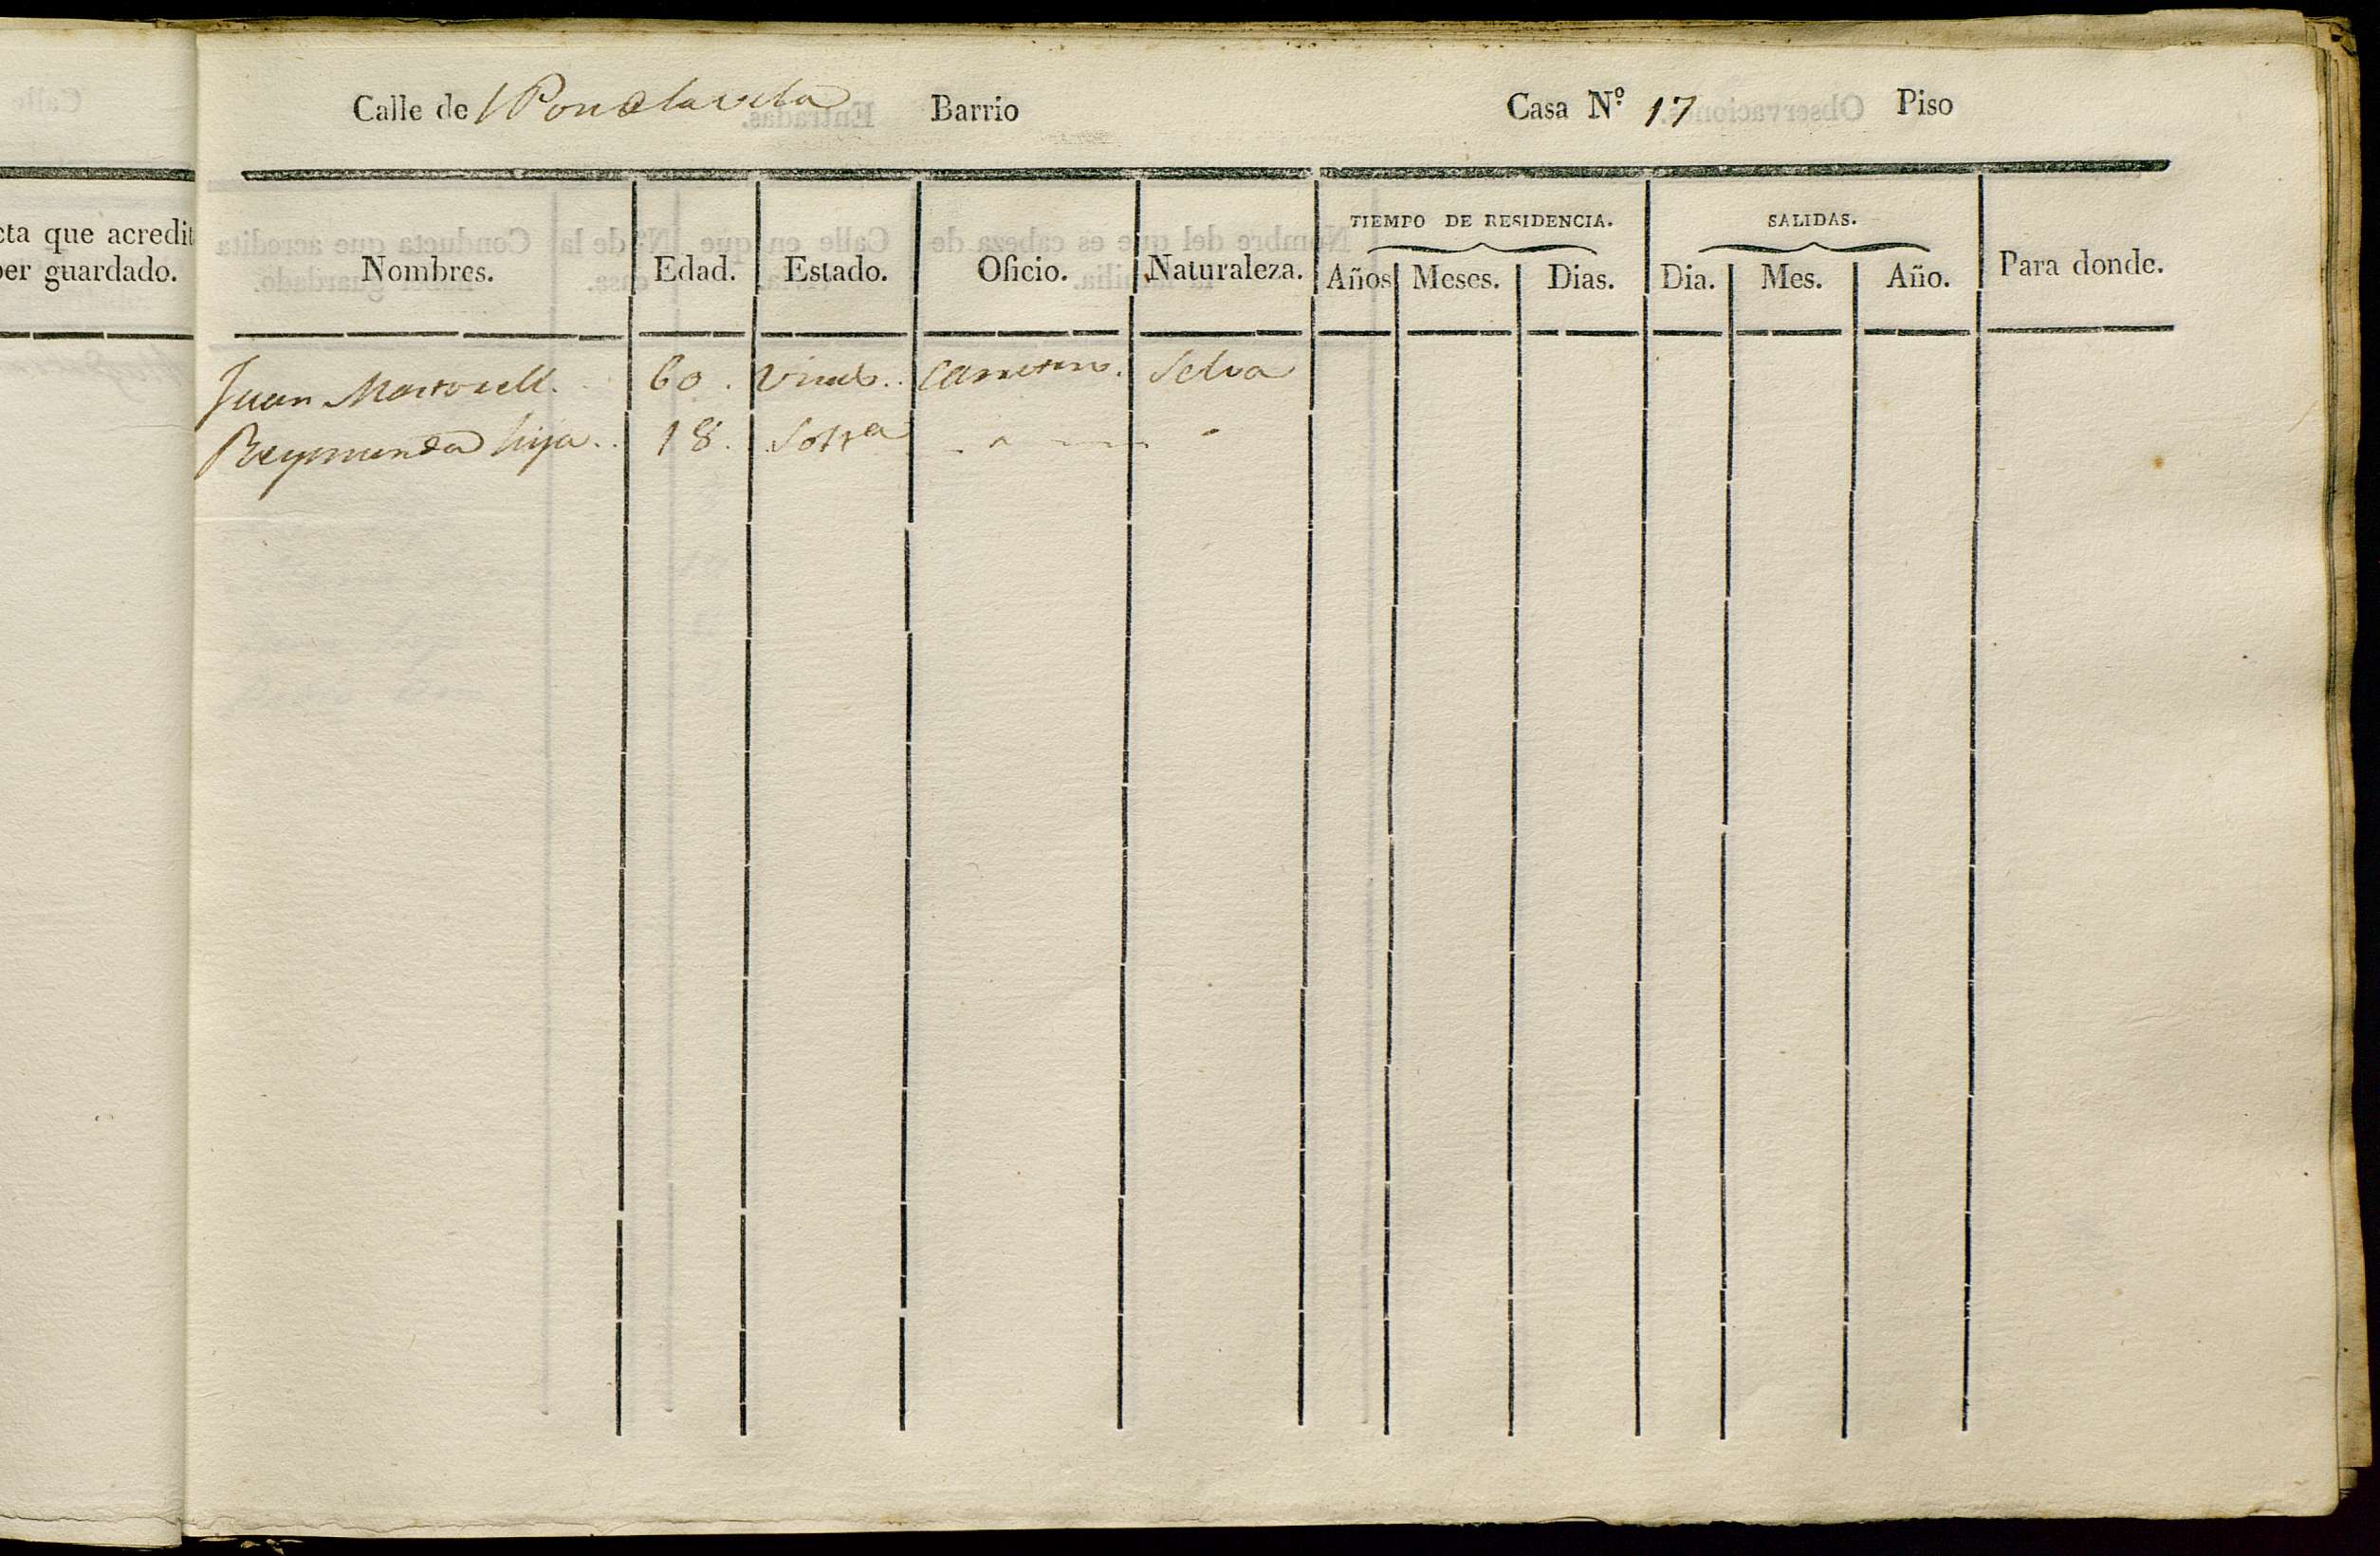 Calle de Barrio Casa N.º 17 Piso
cta que acredit
er guardado.
Nombres. Edad. Estado. Oficio. Naturaleza. TIEMPO DE RESIDENCIA. Años Meses. Dias. SALIDAS. Dia. Mes. Año. Para donde.
Juan Martorell. 60. Viudo. Selva
Reymunda hija. 18. Solt.ª